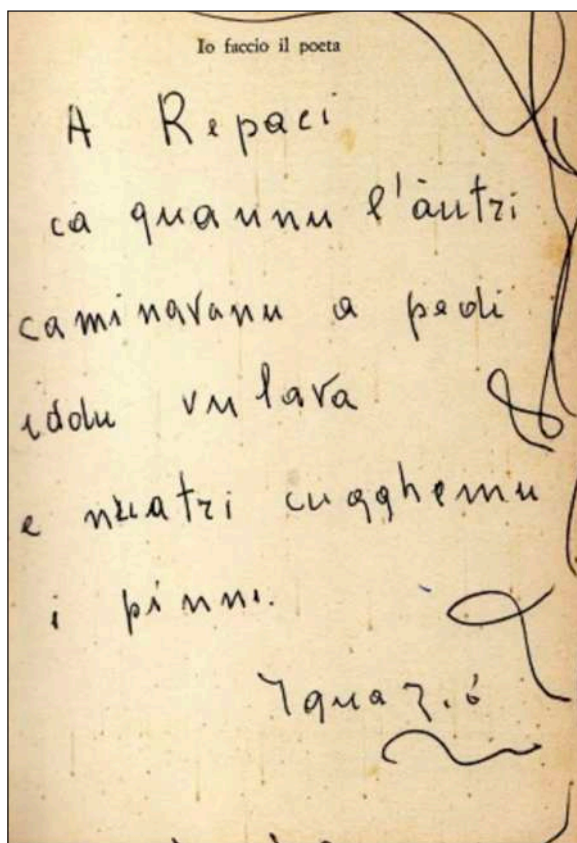 Io faccio il poeta
A Repaci
ca quannu l'àutri
caminavanu a pedi
iddu vulava
e nuatri cugghemu
i pinni.
Ignazio